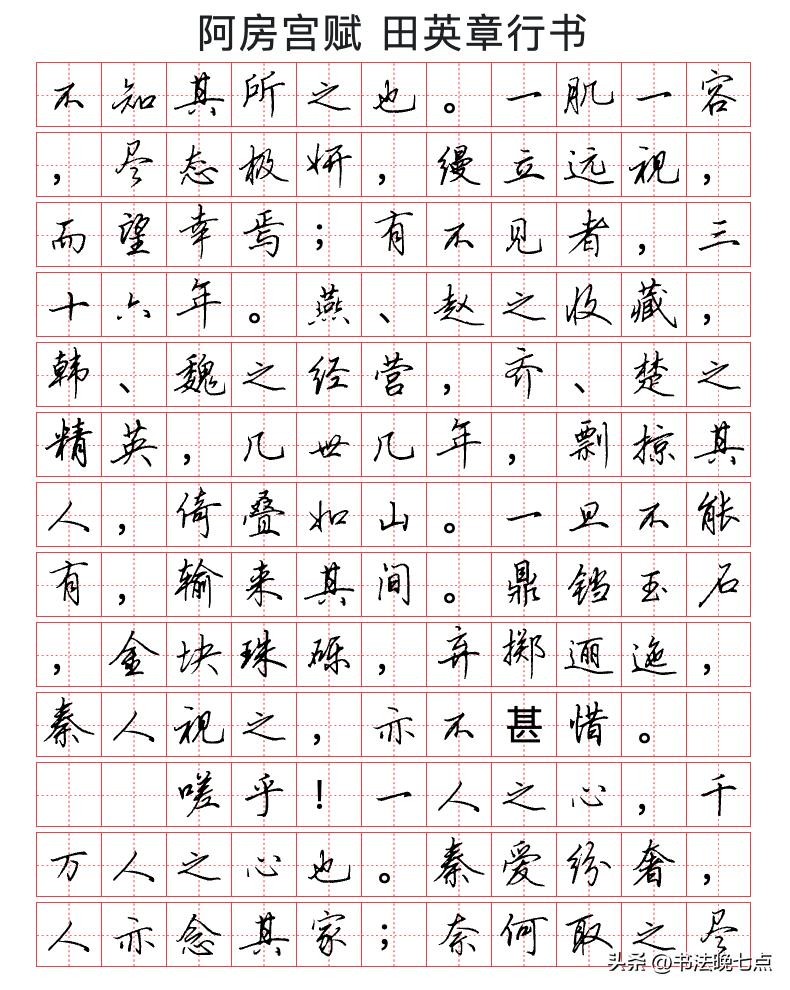 阿房宫赋 田英章行书
不知其所之也。一肌一容
，尽态极妍，缦立远视，
而望幸焉；有不见者，三
十六年。燕、赵之收藏，
韩、魏之经营，齐、楚之
精英，几世几年，剽掠其
人，倚叠如山。一旦不能
有，输来其间。鼎铛玉石
，金块珠砾，弃掷逦迤，
秦人视之，亦不甚惜。
嗟乎！一人之心，千
万人之心也。秦爱纷奢，
人亦念其家；奈何取之尽
头条 @书法晚七点